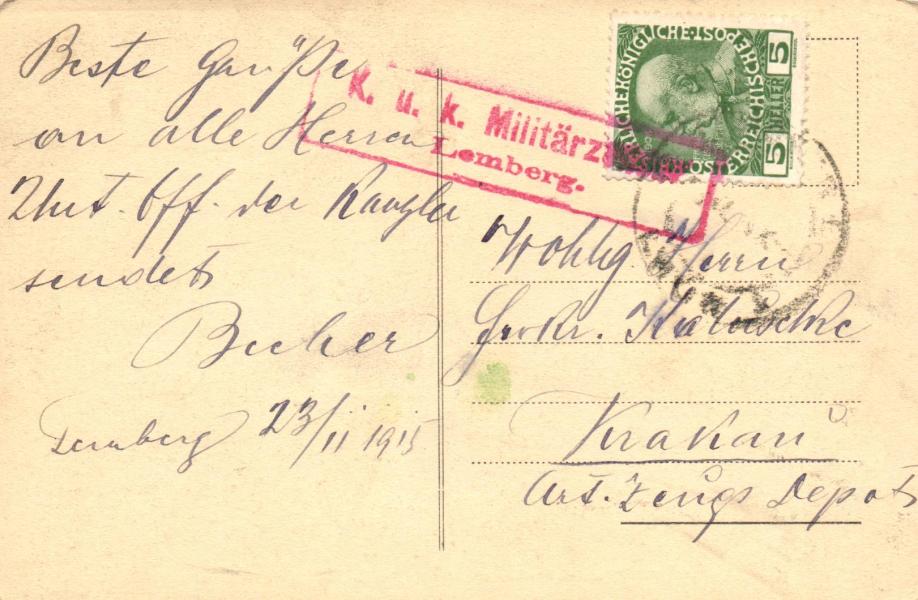 Beste Grüße
an alle Herren
Unt. Off. der Kanzlei
sendet
Bucher
Lemberg 23/II 1915
K. u. k. Militärz
Lemberg.
KÖNIGLICHE ÖSTERREICHISCHE POST
5 HELLER 5
Wohlg. Herrn
Krakau
Art. Zeugs Depot